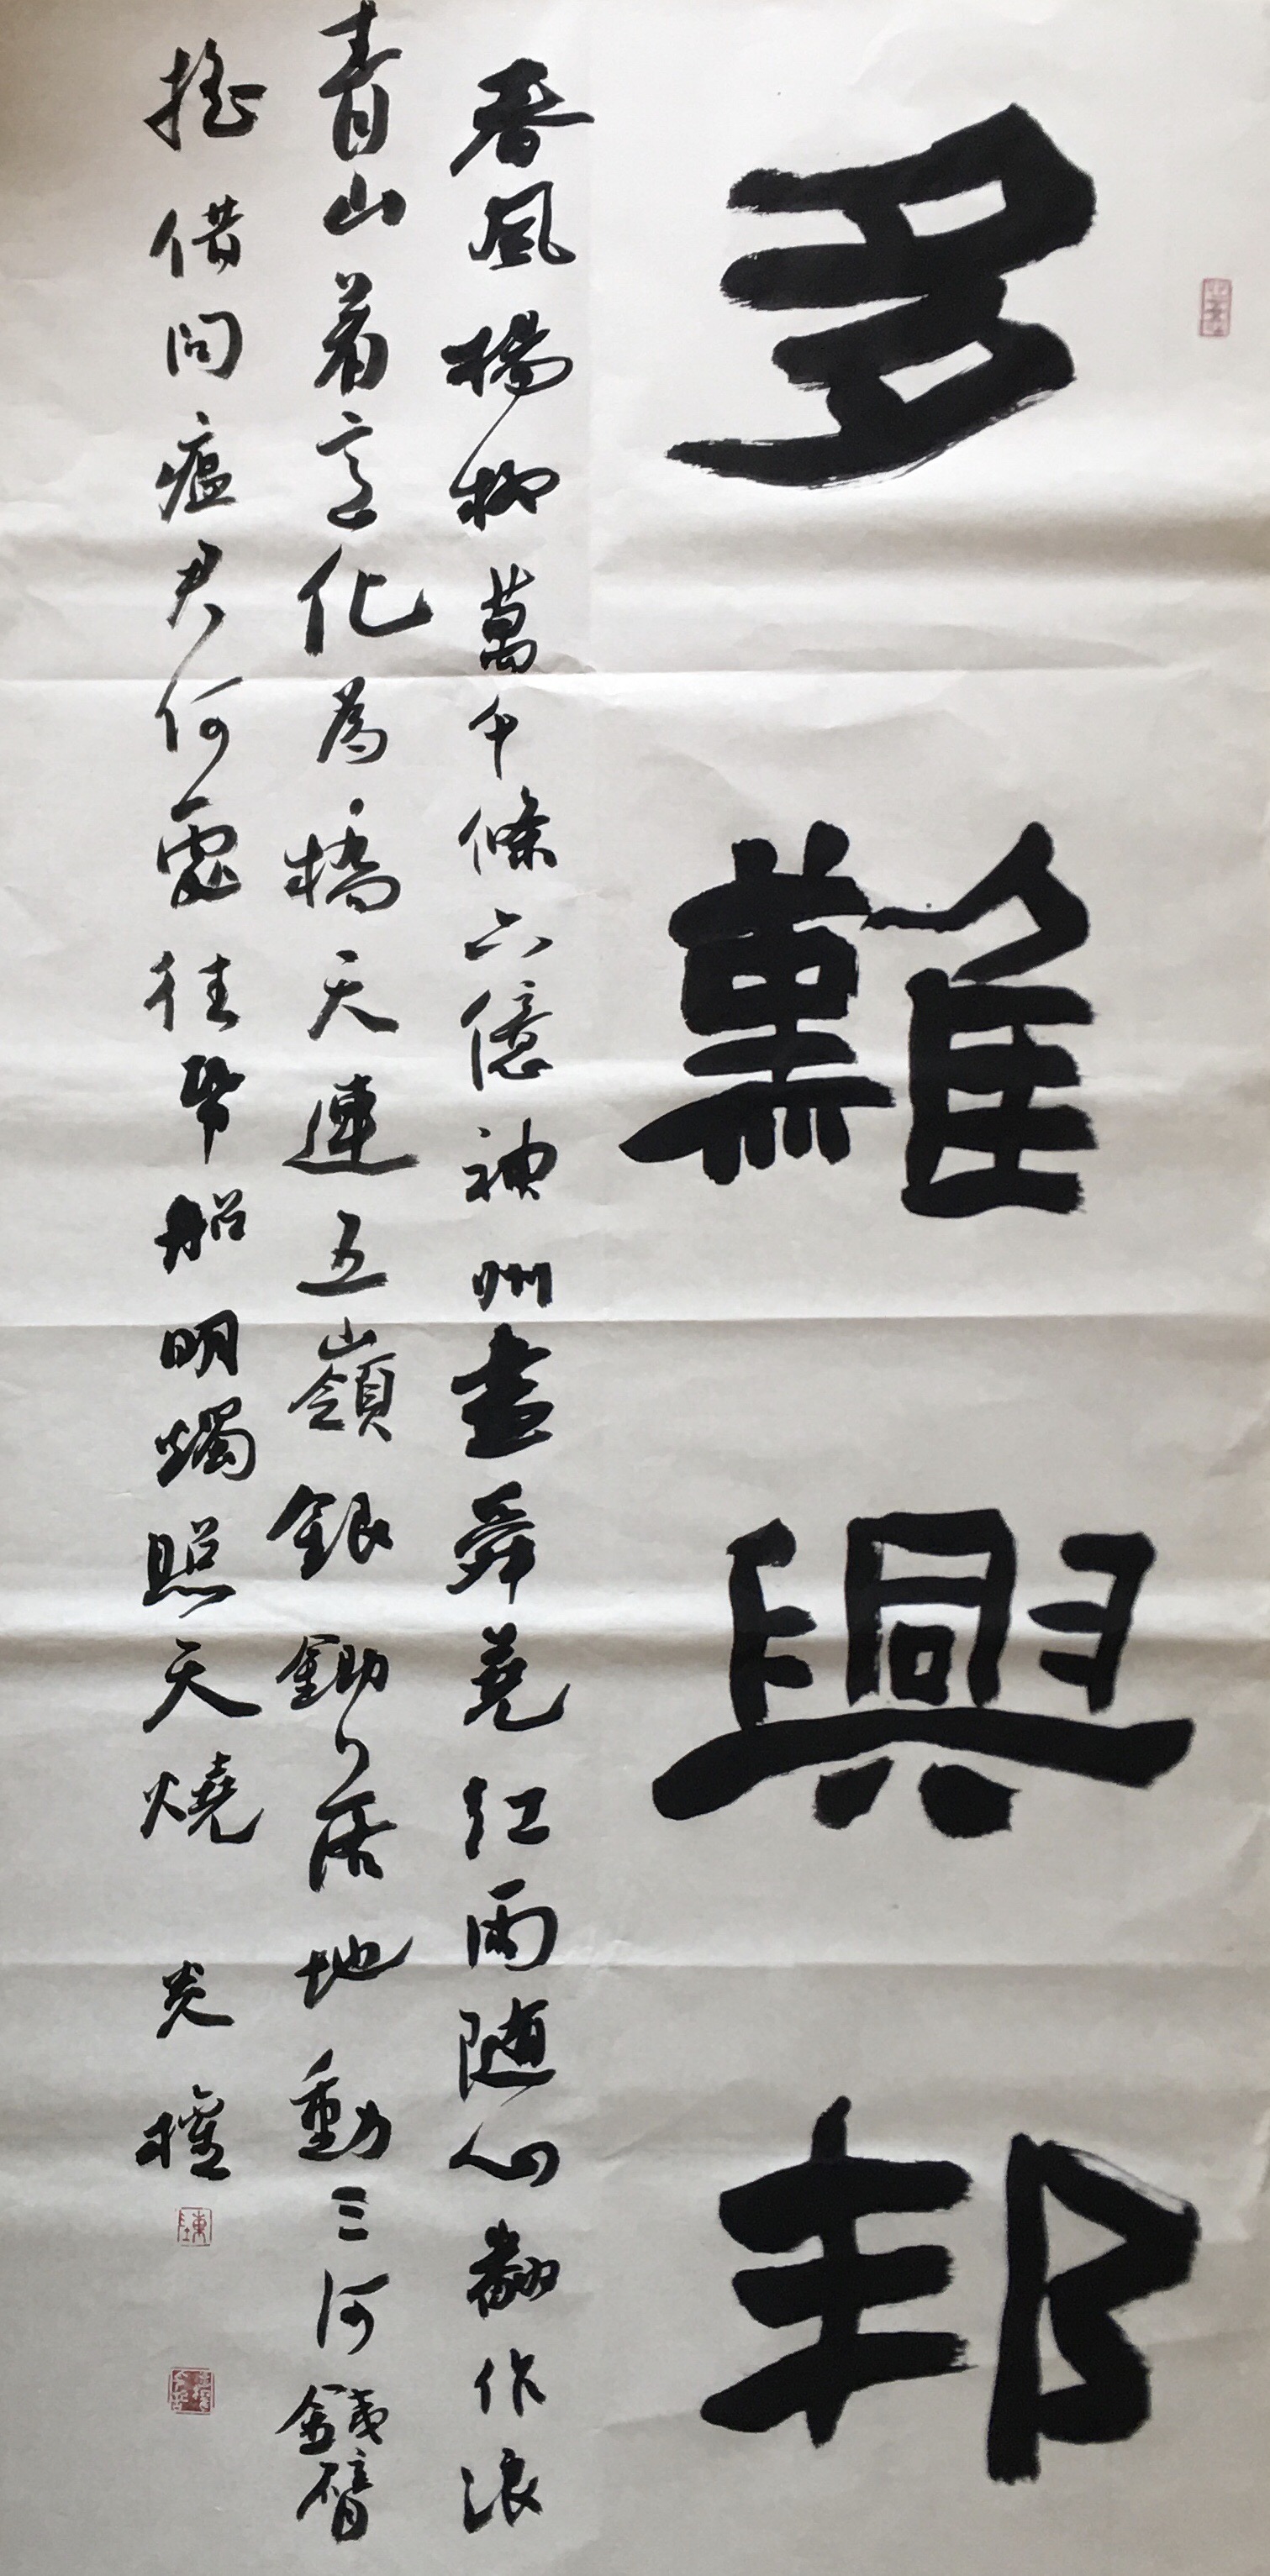 多難興邦
春風楊柳萬千條六億神州盡舜堯紅雨随心翻作浪
青山着意化為橋天連五嶺銀鋤落地動三河鐵臂
搖借問瘟君何處往帋船明燭照天燒